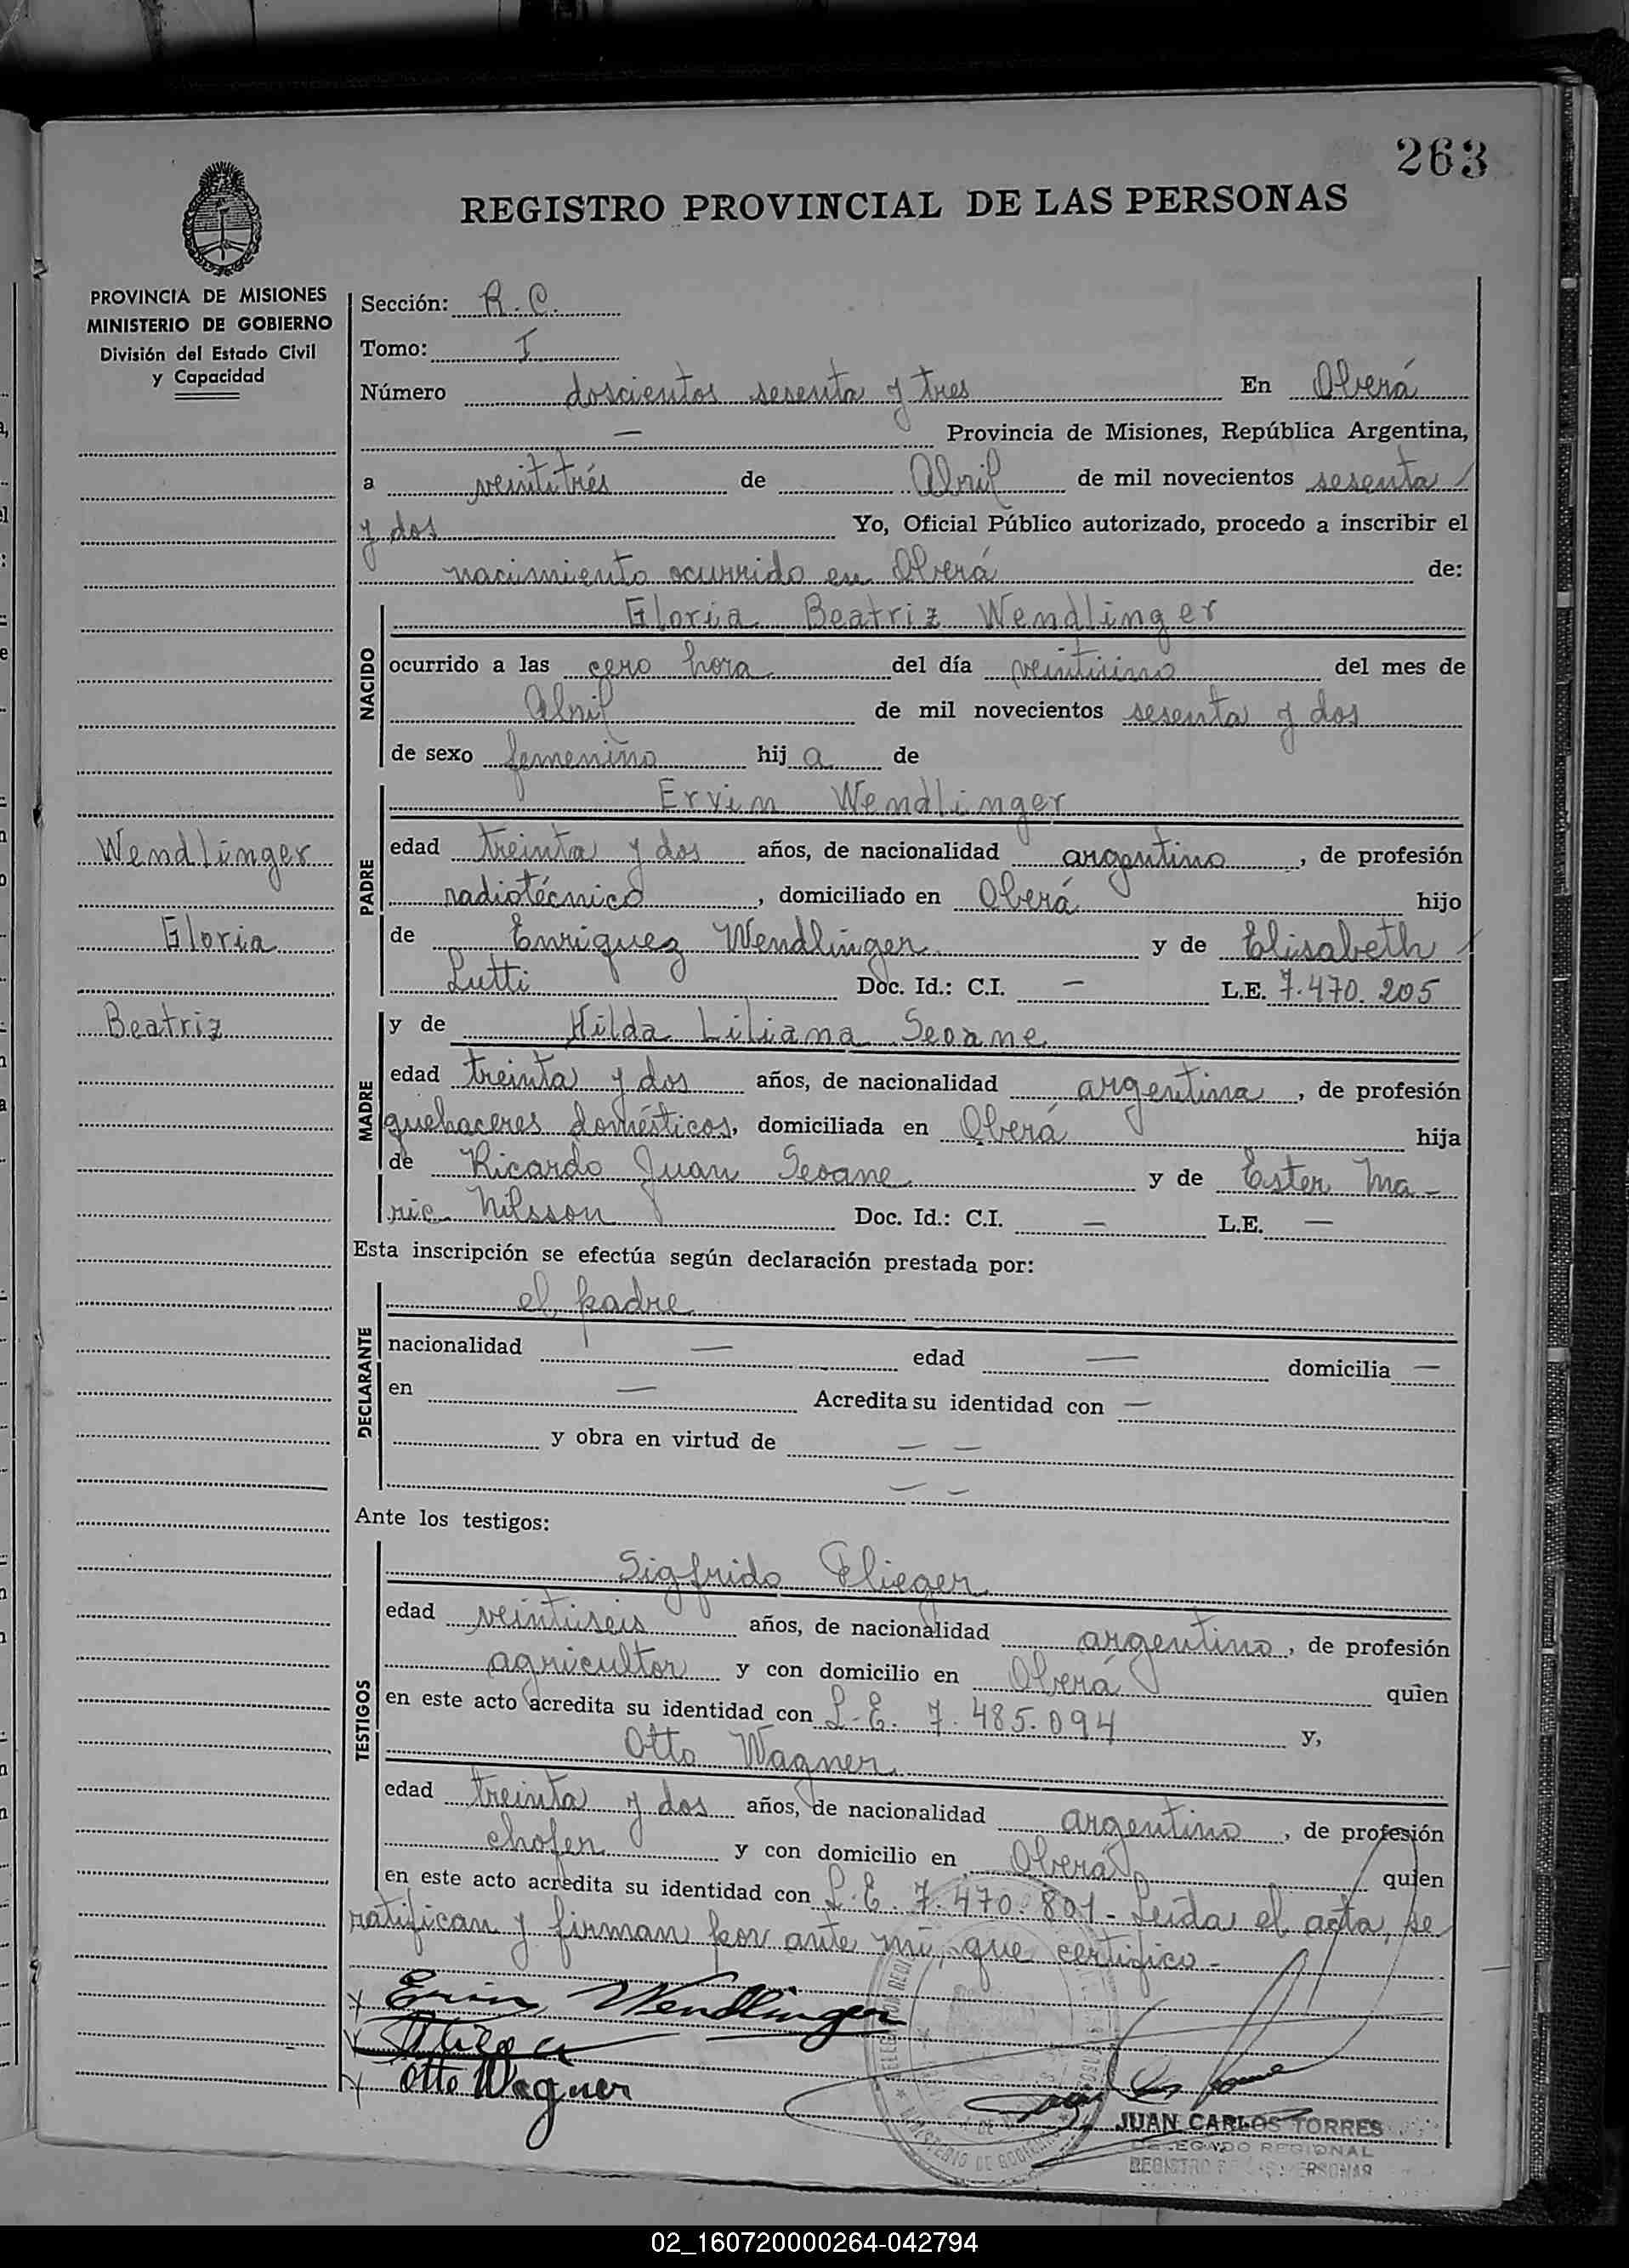 263
REGISTRO PROVINCIAL DE LAS PERSONAS
PROVINCIA DE MISIONES
MINISTERIO DE GOBIERNO
División del Estado Civil
y Capacidad
Wendlinger
Gloria
Beatriz
Sección: R. C.
Tomo: I
Número doscientos sesenta y tres En Oberá
— Provincia de Misiones, República Argentina,
a veintitrés de Abril de mil novecientos sesenta
y dos Yo, Oficial Público autorizado, procedo a inscribir el
nacimiento ocurrido en Oberá de:
NACIDO
Gloria Beatriz Wendlinger
ocurrido a las cero hora del día veintiuno del mes de
Abril de mil novecientos sesenta y dos
de sexo femenino hij a de
PADRE
Ervin Wendlinger
edad treinta y dos años, de nacionalidad argentino, de profesión
radiotécnico, domiciliado en Oberá hijo
de Enriquez Wendlinger y de Elisabeth
Lutti Doc. Id.: C.I. — L.E. 7.470.205
MADRE
y de Hilda Liliana Seoane
edad treinta y dos años, de nacionalidad argentina, de profesión
quehaceres domésticos, domiciliada en Oberá hija
de Ricardo Juan Seoane y de Ester Ma-
rie Nilsson Doc. Id.: C.I. — L.E. —
Esta inscripción se efectúa según declaración prestada por:
DECLARANTE
el padre
nacionalidad — edad — domicilia —
en — Acredita su identidad con —
y obra en virtud de — —
— —
Ante los testigos:
TESTIGOS
Sigfrido Flieger
edad veintiseis años, de nacionalidad argentino, de profesión
agricultor y con domicilio en Oberá quien
en este acto acredita su identidad con L.E. 7.485.094 y,
Otto Wagner
edad treinta y dos años, de nacionalidad argentino, de profesión
chofer y con domicilio en Oberá quien
en este acto acredita su identidad con L.E. 7.470.801- Leída el acta, se
ratifican y firman por ante mí, que certifico-
x Ervin Wendlinger
x Flieger
x Otto Wagner
JUAN CARLOS TORRES
DELEGADO REGIONAL
REGISTRO DE LAS PERSONAS
02_160720000264-042794